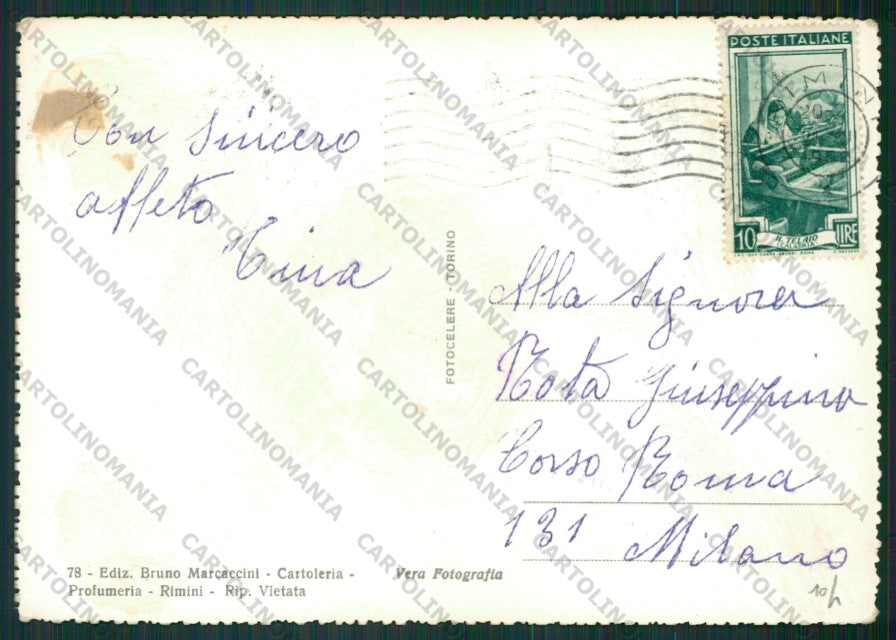 Con sincero
affeto
Tina
POSTE ITALIANE
10 LIRE
IL TELAIO
FOTOCELERE - TORINO
Alla Signora
Rota Giuseppina
Corso Roma
131 Milano
78 - Ediz. Bruno Marcaccini - Cartoleria -
Profumeria - Rimini - Rip. Vietata
Vera Fotografia
10
CARTOLINOMANIA